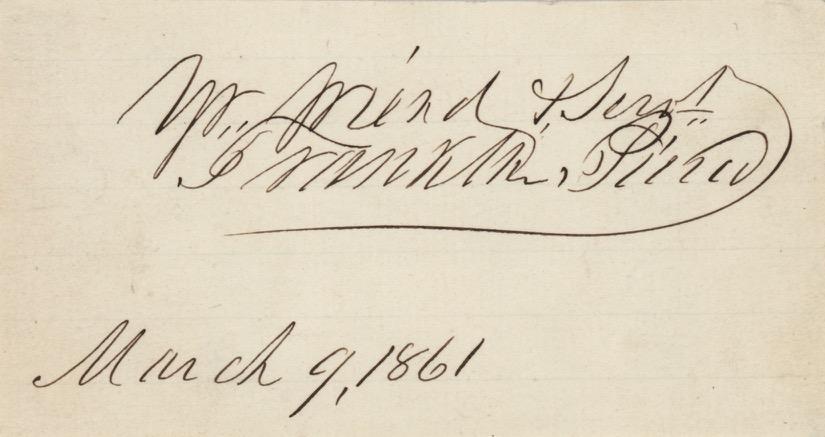 Yr. friend & Servt
Franklin Pierce
March 9, 1861